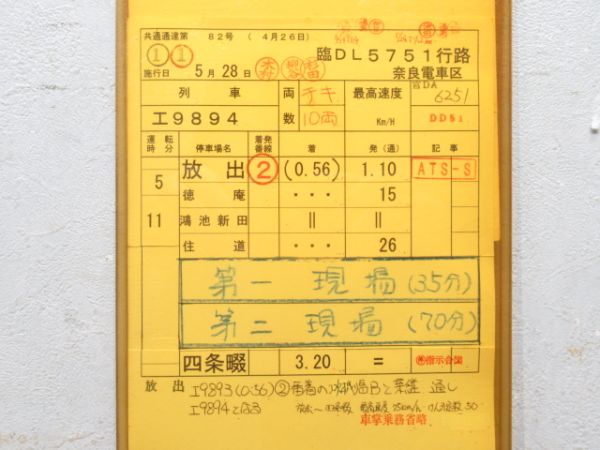 共通通達第 82号 (4月26日)
臨DL5751行路
施行日 5月28日
奈良電車区
列車 両数 チキ 10両 最高速度 Km/H 6251
工9894 DD51
運転時分 停車場名 着発番線 着 発(通) 記事
放出 ② (0.56) 1.10 ATS-S
5 徳庵 ・・・ 15
11 鴻池新田 || ||
住道 ・・・ 26
第一 現場 (35分)
第二 現場 (70分)
四条畷 3.20 = 指示合図
放出 工9893(0:56)②番着の
工9894と
車掌乗務省略